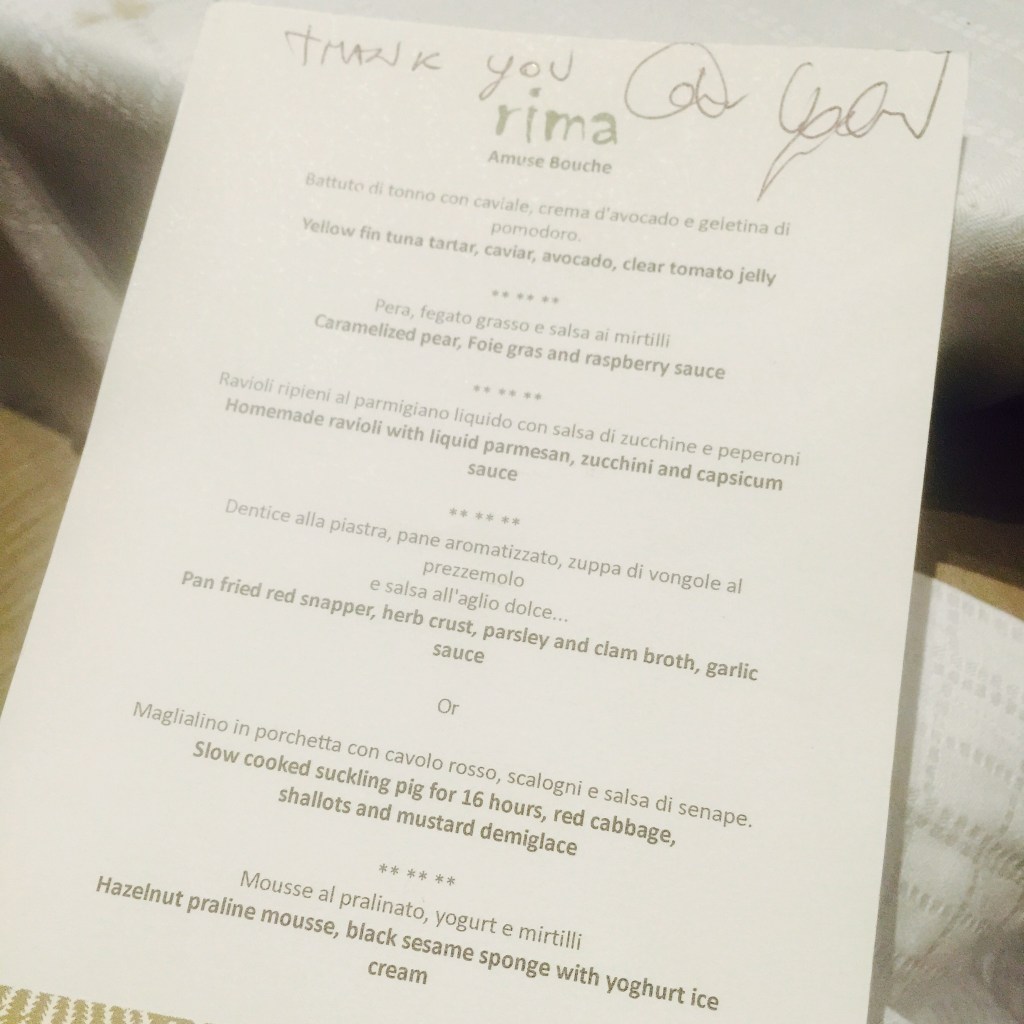 THANK YOU
rima
Amuse Bouche
Battuto di tonno con caviale, crema d'avocado e geletina di
pomodoro.
Yellow fin tuna tartar, caviar, avocado, clear tomato jelly
** ** **
Pera, fegato grasso e salsa ai mirtilli
Caramelized pear, Foie gras and raspberry sauce
** ** **
Ravioli ripieni al parmigiano liquido con salsa di zucchine e peperoni
Homemade ravioli with liquid parmesan, zucchini and capsicum
sauce
** ** **
Dentice alla piastra, pane aromatizzato, zuppa di vongole al
prezzemolo
e salsa all'aglio dolce...
Pan fried red snapper, herb crust, parsley and clam broth, garlic
sauce
Or
Maglialino in porchetta con cavolo rosso, scalogni e salsa di senape.
Slow cooked suckling pig for 16 hours, red cabbage,
shallots and mustard demiglace
** ** **
Mousse al pralinato, yogurt e mirtilli
Hazelnut praline mousse, black sesame sponge with yoghurt ice
cream